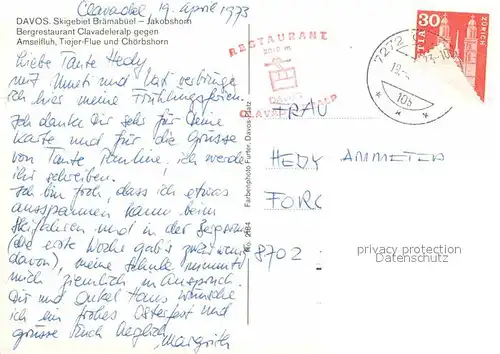 Clavadel 19. April 1973
DAVOS. Skigebiet Brämabüel – Jakobshorn
Bergrestaurant Clavadeleralp gegen
Amselfluh, Tiejer-Flue und Chörbshorn
Liebe Tante Hedy
mit und verbringe
ich hier meine Frühlingsferien.
Ich danke Dir sehr für Deine
Karte und für die Grüsse
von Tante Pauline, ich werde
ihr schreiben!
Ich bin froh, dass ich etwas
ausspannen kann beim
Skifahren und in der Bergsonne
(die erste Woche gab's wenig
davon), meine Schule nimmt
mich ziemlich in Anspruch.
Dir und Onkel Hans wünsche
ich ein frohes Osterfest und
grüsse Euch herzlich
Margrith
Farbenphoto Furter, Davos-Platz
No. 2184
RESTAURANT
DAVOS
CLAVADELERALP
7272
10b
30
ZÜRICH
FRAU
HEDY AMMETER
FORCH
8702
privacy protection
Datenschutz